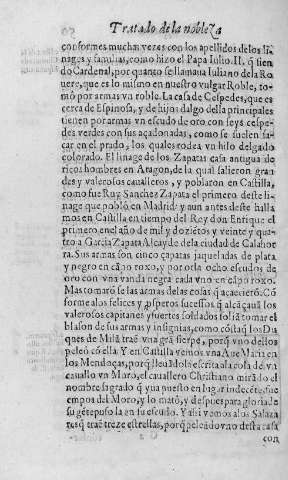 Tratado de la nobleza
conformes muchas vezes con los apellidos de los li-
nages y familias, como hizo el Papa Iulio. II. q̃ sien
do Cardenal, por quanto se llamaua Iuliano de la Ro
uere, que es lo mismo en nuestro vulgar Roble, to-
mò por armas vn roblo. La casa de Cespedes, que es
cerca de Espinosa, y de hijos dalgo de la principales
tienen por armas vn escudo de oro con seys cespe-
des verdes con sus açadonadas, como se suelen sa-
car en el prado, los quales rodea vn hilo delgado
colorado. El linage de los Zapatas casa antigua de
ricos hombres en Aragon, de la qual salieron gran-
des y valerosos caualleros, y poblaron en Castilla,
como fue Ruy Sanchez Zapata el primero deste li-
nage que poblò en Madrid: y aun antes deste halla
mos en Castilla en tiempo del Rey don Enrique el
primero en el año de mil y dozientos y veinte y qua-
tro a Garcia Zapata Alcayde de la ciudad de Calahor
ra. Sus armas son cinco çapatas jaqueladas de plata
y negro en cãpo roxo, y por orla ocho escudos de
oro con vna vanda negra cada vno en cãpo roxo.
Mas tomarõ se las armas de las cosas q̃ acaecierõ. Cõ
forme a los felices y prosperos sucessos q̃ alcãçauã los
valerosos capitanes y fuertes soldados soliã tomar el
blason de sus armas y insignias, como cõsta q̃ los Du
ques de Milã traẽ vna grã sierpe, porq̃ vno dellos
peleò cõ ella. Y en Castilla vemos vna Aue Maria en
los Mendoças, porq̃ lleuãdola escrita a la cola de vn
cauallo vn Moro, el cauallero Christiano mirãdo el
nombre sagrado q̃ yua puesto en lugar indecẽte, fue
empos del Moro, y lo matò, y despues para gloria de
su gẽte puso la en su escudo. Y assi vemos a los Salaza
res q̃ traẽ treze estrellas, porq̃ peleãdo vno desta casa
con